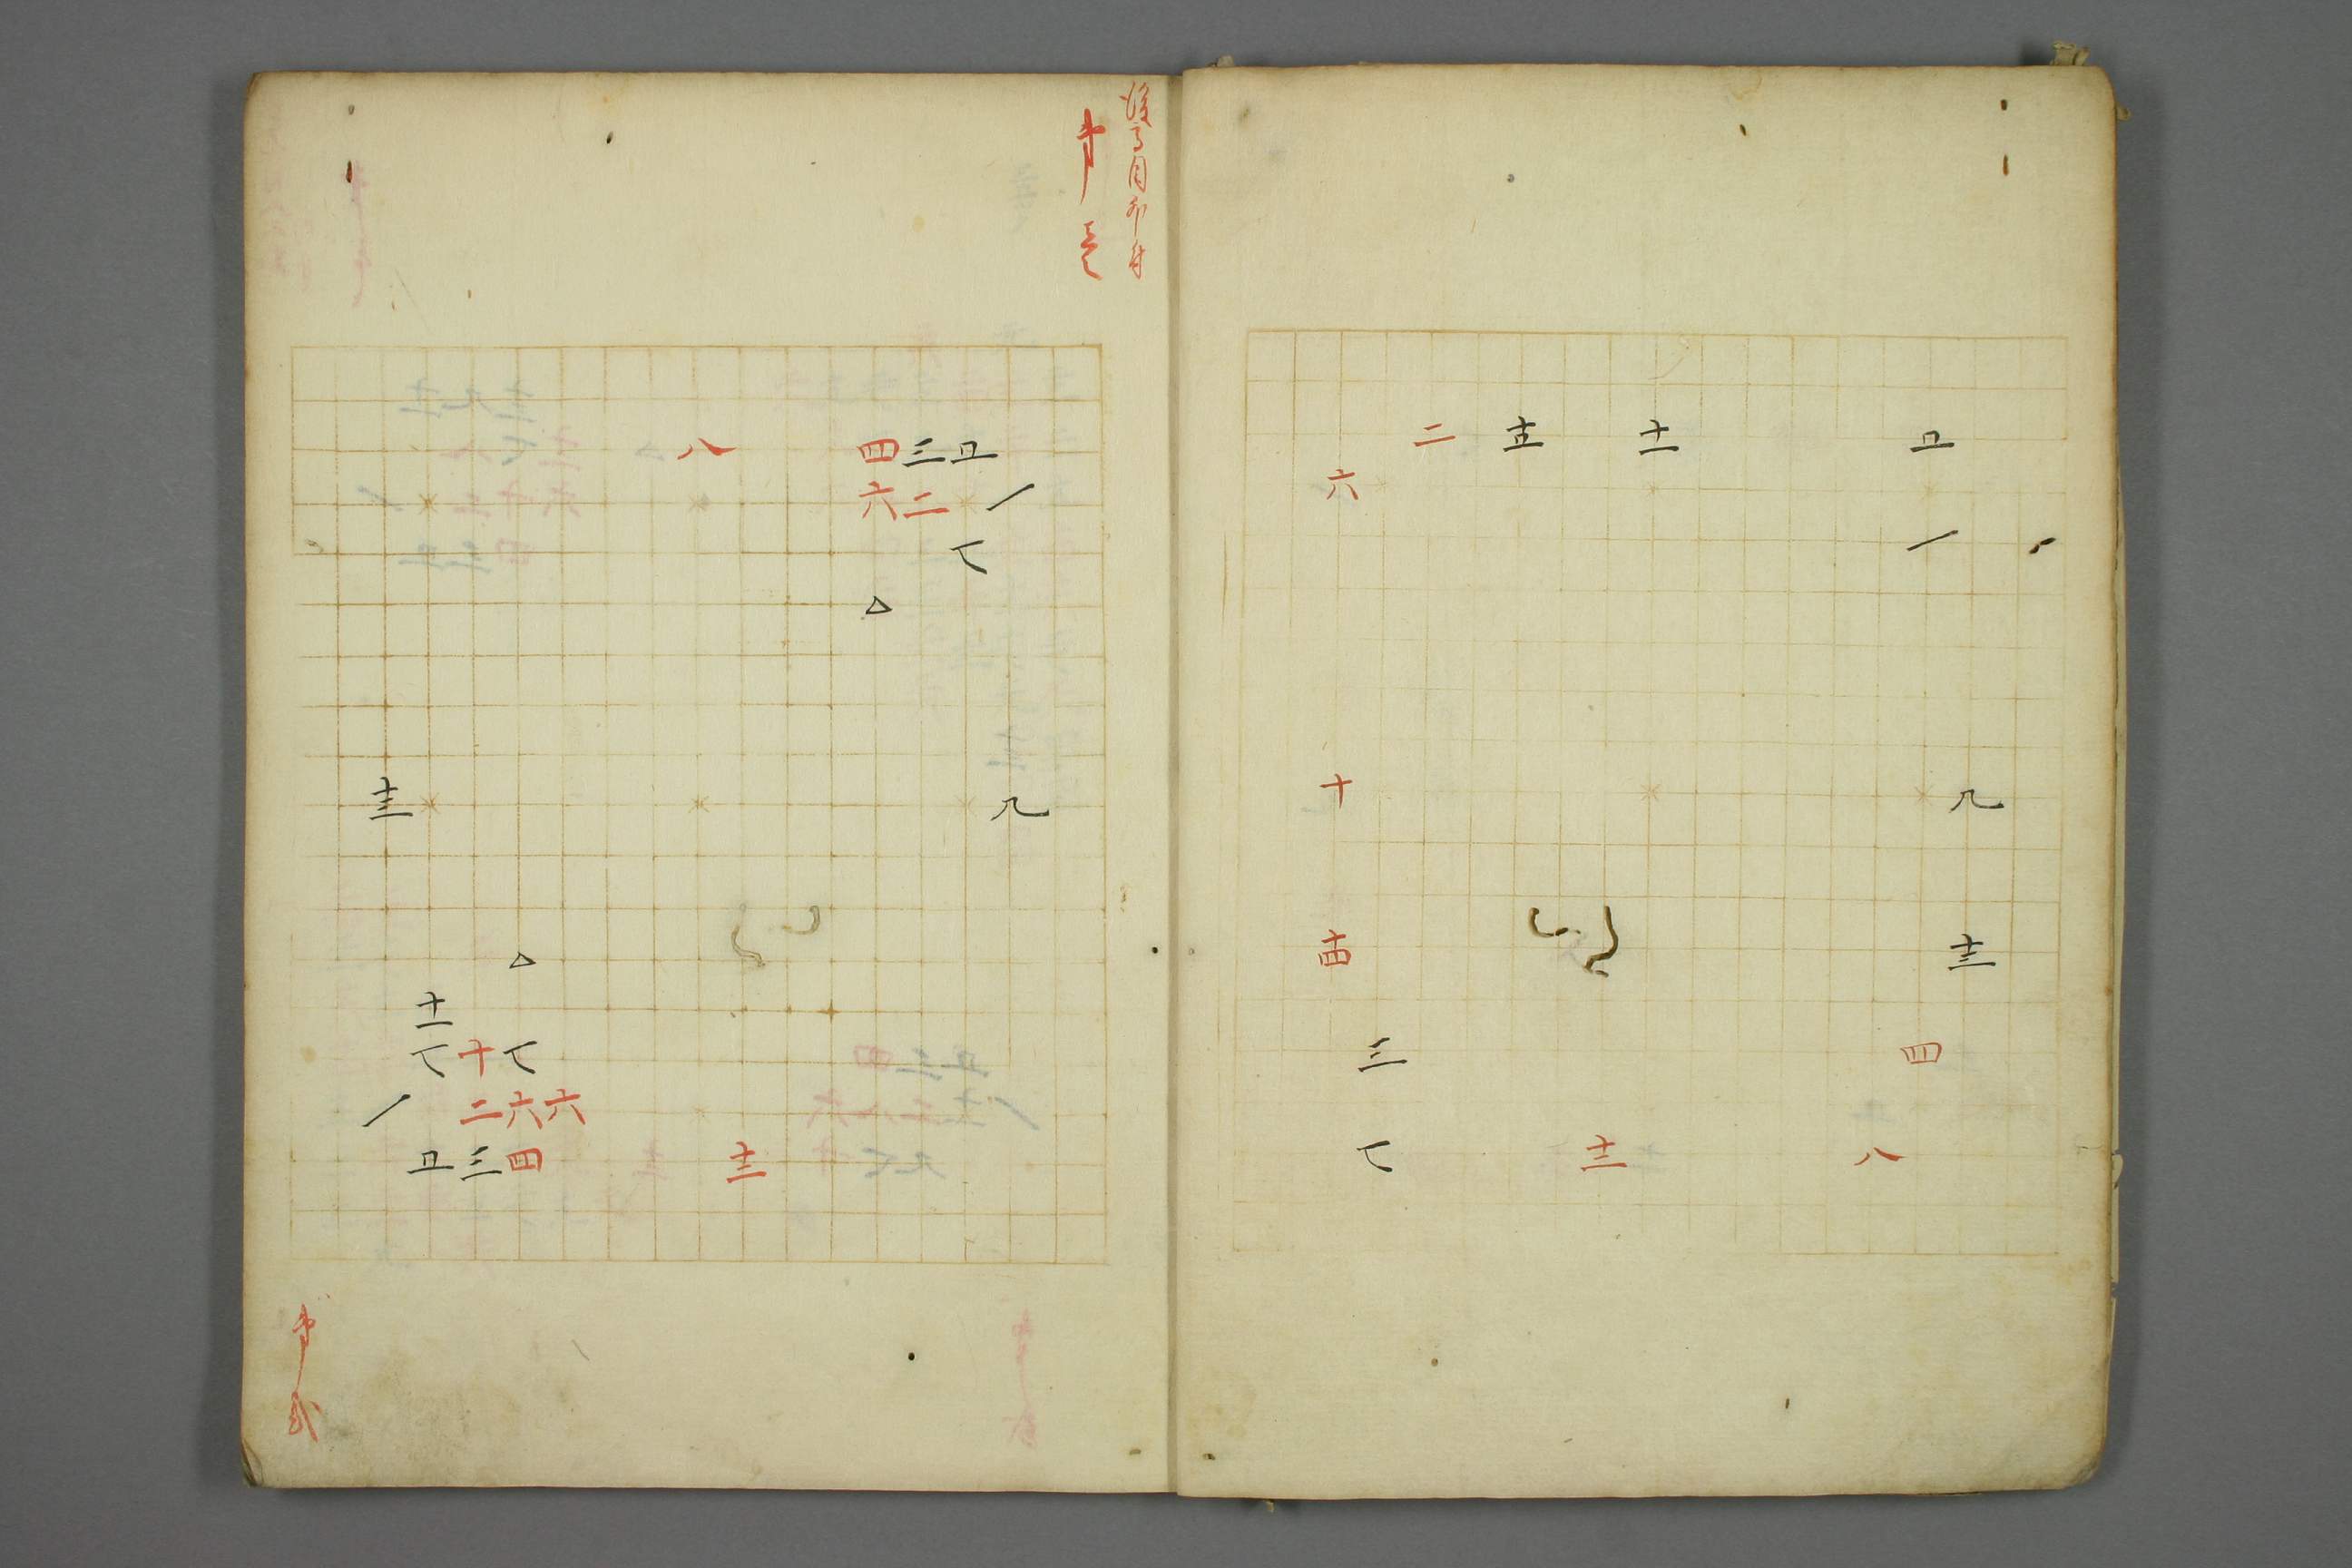 二 十五 十一 五
六
一
十 九
十四 十三
三 四
七 十二 八
第壱
八 四 三 五
六 二 一
七
△
十三 九
△
十一
七 十 七
一 二 六 六
五 三 四 十二
第弐